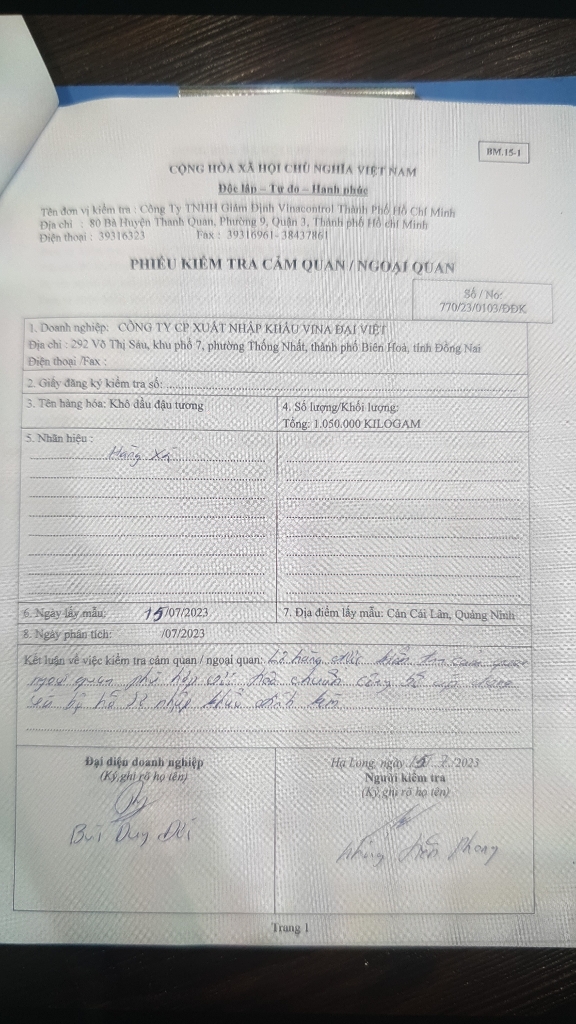 BM.15-1
CỘNG HÒA XÃ HỘI CHỦ NGHĨA VIỆT NAM
Độc lập – Tự do – Hạnh phúc
Tên đơn vị kiểm tra : Công Ty TNHH Giám Định Vinacontrol Thành Phố Hồ Chí Minh
Địa chỉ : 80 Bà Huyện Thanh Quan, Phường 9, Quận 3, Thành phố Hồ chí Minh
Điện thoại : 39316323 Fax : 39316961- 38437861
PHIẾU KIỂM TRA CẢM QUAN / NGOẠI QUAN
Số / No:
770/23/0103/ĐĐK
1. Doanh nghiệp: CÔNG TY CP XUẤT NHẬP KHẨU VINA ĐẠI VIỆT
Địa chỉ : 292 Võ Thị Sáu, khu phố 7, phường Thống Nhất, thành phố Biên Hoà, tỉnh Đồng Nai
Điện thoại /Fax :
2. Giấy đăng ký kiểm tra số:
3. Tên hàng hóa: Khô dầu đậu tương
4. Số lượng/Khối lượng:
Tổng: 1.050.000 KILOGAM
5. Nhãn hiệu :
Hàng Xá
6. Ngày lấy mẫu: 15/07/2023
7. Địa điểm lấy mẫu: Cân Cái Lân, Quảng Ninh
8. Ngày phân tích: /07/2023
Kết luận về việc kiểm tra cảm quan / ngoại quan: Lô hàng được kiểm tra cảm quan
ngoại quan phù hợp với tiêu chuẩn công bố
hồ sơ nhập khẩu đính kèm
Đại diệu doanh nghiệp
(Ký, ghi rõ họ tên)
Bùi Duy Đôi
Hạ Long, ngày 15/7/2023
Người kiểm tra
(Ký, ghi rõ họ tên)
Phong
Trang 1